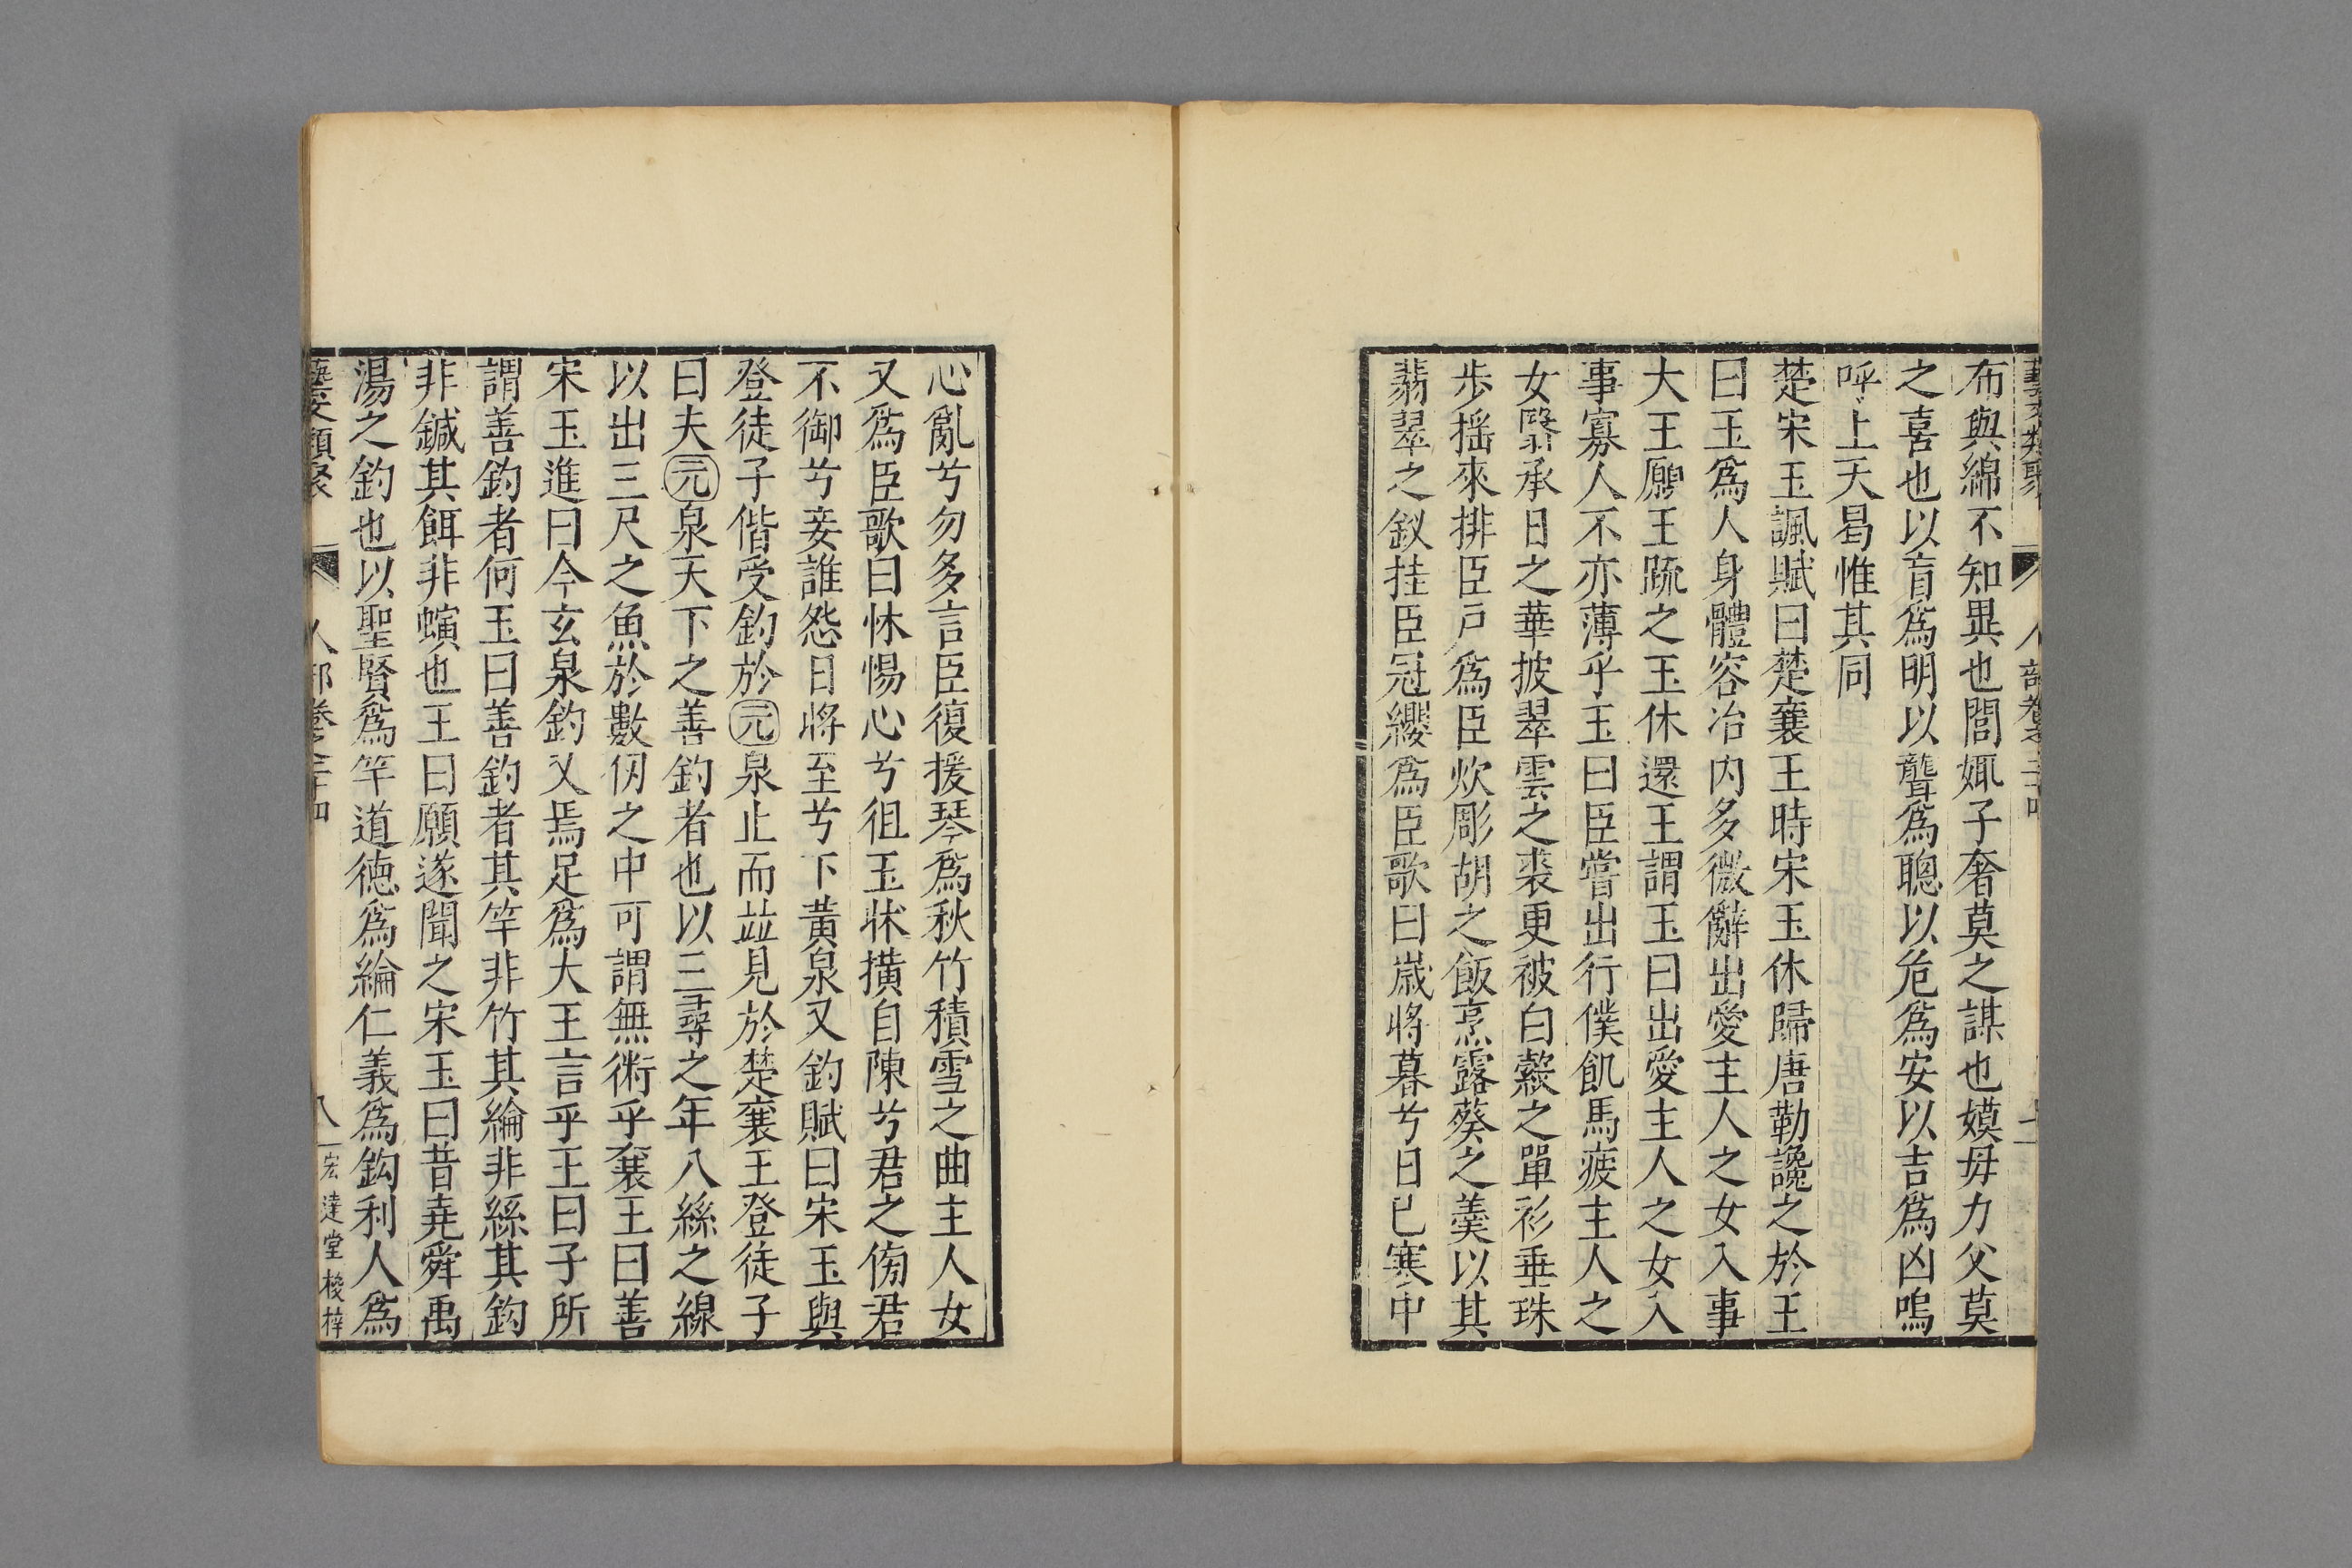 藝文類聚 人部卷之二十四
布與綿不知異也閭娵子奢莫之謀也嫫母力父莫
之喜也以盲爲明以聾爲聰以危爲安以吉爲凶嗚
呼上天曷惟其同
楚宋玉諷賦曰楚襄王時宋玉休歸唐勒讒之於王
曰玉爲人身體容冶内多微辭出愛主人之女入事
大王願王疏之玉休還王謂玉曰出愛主人之女入
事寡人不亦薄乎玉曰臣嘗出行僕飢馬疲主人之
女翳承日之華披翠雲之裘更被白縠之單衫垂珠
步揺來排臣戸爲臣炊彫胡之飯烹露葵之羹以其
翡翠之釵挂臣冠纓爲臣歌曰嵗將暮兮日已寒中
心亂兮勿多言臣復援琴爲秋竹積雪之曲主人女
又爲臣歌曰怵惕心兮徂玉牀撗自陳兮君之傍君
不御兮妾誰怨日將至兮下黄泉又釣賦曰宋玉與
登徒子偕受釣於元泉止而並見於楚襄王登徒子
曰夫元泉天下之善釣者也以三尋之年八絲之線
以出三尺之魚於數仞之中可謂無術乎襄王曰善
宋玉進曰今玄泉釣又焉足爲大王言乎王曰子所
謂善釣者何玉曰善釣者其竿非竹其綸非絲其鈎
非鍼其餌非螾也王曰願遂聞之宋玉曰昔堯舜禹
湯之釣也以聖賢爲竿道德爲綸仁義爲鈎利人爲
藝文類聚 人部卷之二十四 八 宏達堂梭梓